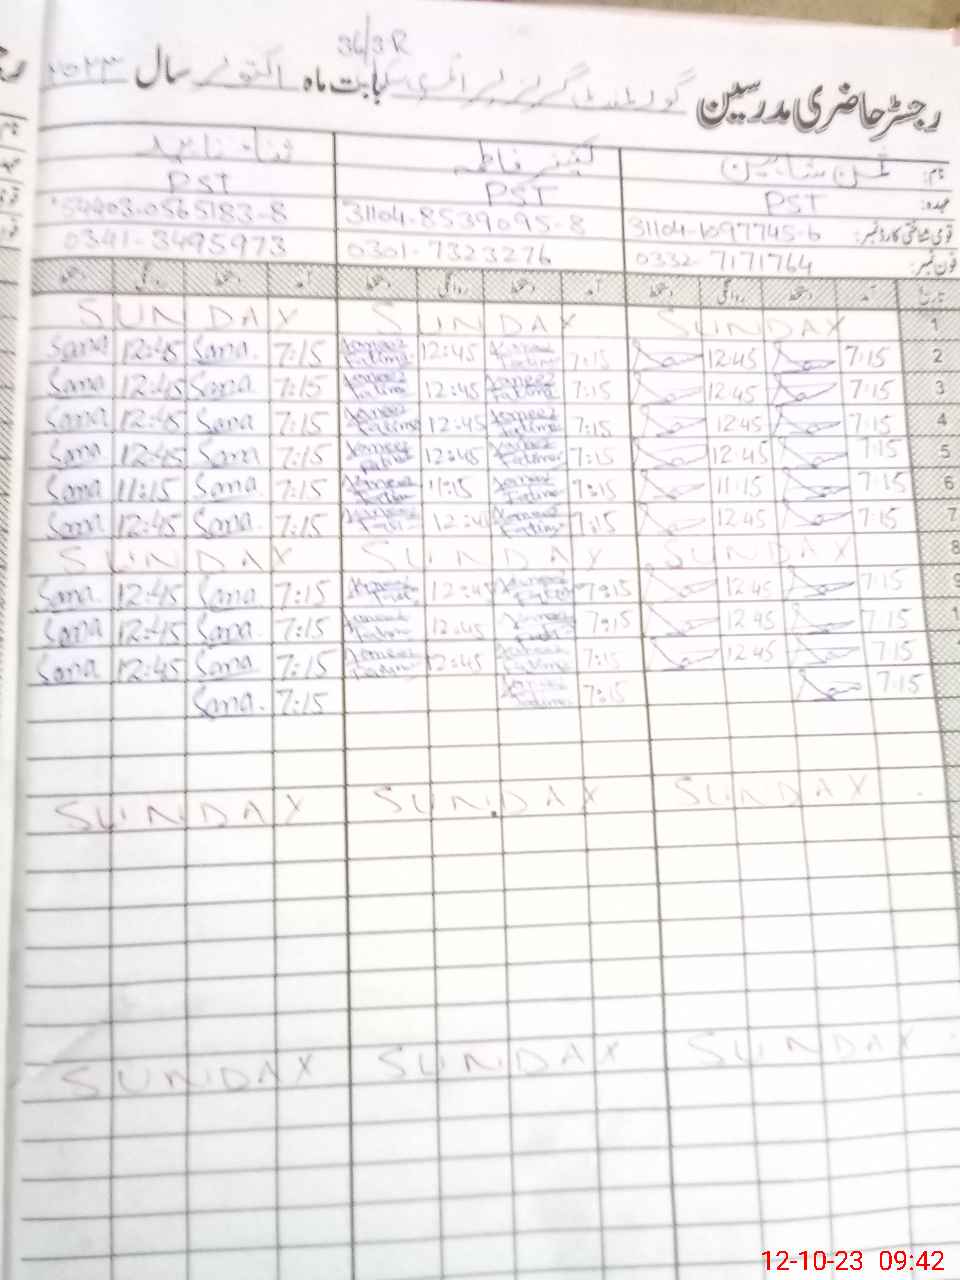 34/3R
رجسٹر حاضری مدرسین گورنمنٹ گرلز پرائمری سکول بابت ماہ اکتوبر سال ۲۰۲۳
نام: ثمن شاہین کنیز فاطمہ ثناء ناہید
عہدہ: PST PST PST
قومی شناختی کارڈ نمبر: 31104-1097745-6 31104-8539095-8 54403-0565183-8
فون نمبر: 0332-7171764 0301-7323276 0341-3495973
تاریخ آمد دستخط روانگی دستخط آمد دستخط روانگی دستخط آمد دستخط روانگی دستخط
1 SUNDAY SUNDAY SUNDAY
2 7:15 12:45 7:15 Kaneez Fatima 12:45 Kaneez Fatima 7:15 Sana 12:45 Sana
3 7:15 12:45 7:15 Kaneez Fatima 12:45 Kaneez Fatima 7:15 Sana 12:45 Sana
4 7:15 12:45 7:15 Kaneez Fatima 12:45 Kaneez Fatima 7:15 Sana 12:45 Sana
5 7:15 12:45 7:15 Kaneez Fatima 12:45 Kaneez Fatima 7:15 Sana 12:45 Sana
6 7:15 11:15 7:15 Kaneez Fatima 11:15 Kaneez Fatima 7:15 Sana 11:15 Sana
7 7:15 12:45 7:15 Kaneez Fatima 12:45 Kaneez Fatima 7:15 Sana 12:45 Sana
8 SUNDAY SUNDAY SUNDAY
9 7:15 12:45 7:15 Kaneez Fatima 12:45 Kaneez Fatima 7:15 Sana 12:45 Sana
7:15 12:45 7:15 Kaneez Fatima 12:45 Kaneez Fatima 7:15 Sana 12:45 Sana
7:15 12:45 7:15 Kaneez Fatima 12:45 Kaneez Fatima 7:15 Sana 12:45 Sana
7:15 7:15 Kaneez Fatima 7:15 Sana
SUNDAY SUNDAY SUNDAY
SUNDAY SUNDAY SUNDAY
12-10-23 09:42